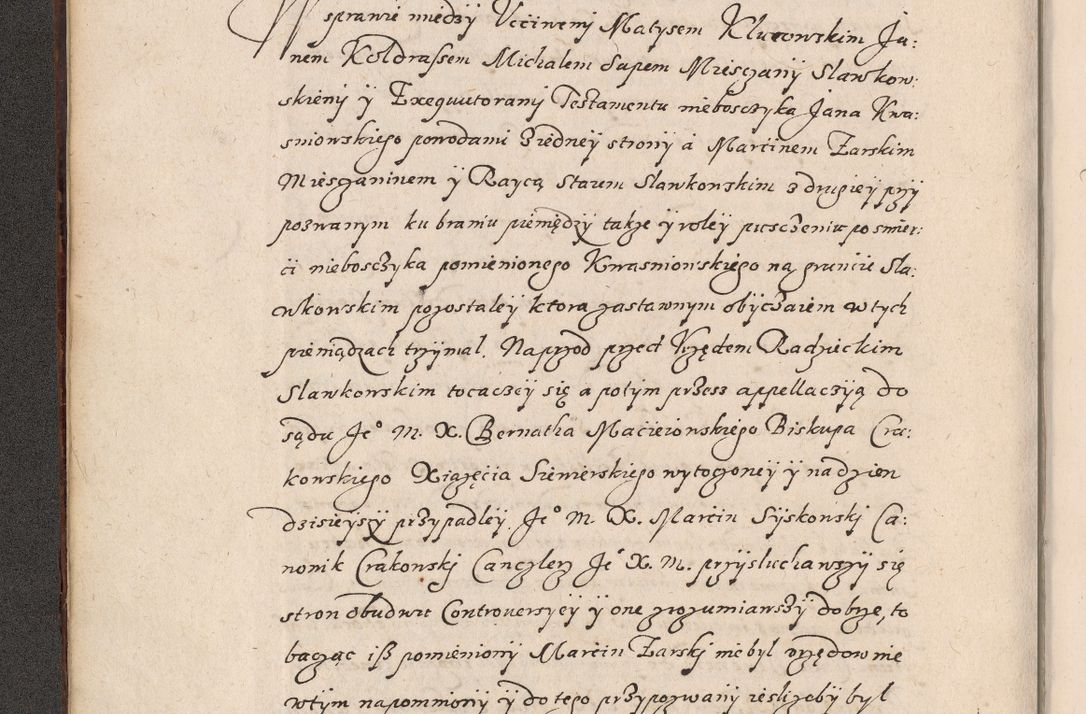 W sprawie miedzÿ Vccivemi Matysem Kluczowskim Ja:
nem Koldrassem Michalem Dupem Miesczanÿ Slawkow:
skiemi ÿ Exequutoramÿ Testamentu nieboszczyka Jana Kwa:
sniowskiego powodami z iedneÿ stronÿ á Marcinem Żarskim
Miesczaninem ÿ Raycą Starem Slawkowskim z drugieÿ przÿ
pozwanym ku braniu pieniędzÿ takze ÿ roleÿ pusczeniu po smier:
ci nieboszczyka pomienionego Kwasniowskiego na gruncie Sla:
wkowskim pozostaleÿ ktora zastawnym obÿczaiem w tych
pieniądzach trzÿmal. Naprzod przed Vrzędem Radzieckim
Slawkowskim toczączeÿ się a potÿm przesz appellacziją do
sądu Je° M. X. Bernatha Macieiowskiego Biskupa Cra:
kowskiego Xiązęcia Siewierskiego wytoczoneÿ ÿ na dzien
dzisieÿszÿ przÿpadleÿ. Je° M. X. Marcin Sÿskowskj Ca:
nonik Crakowskj Canczlerz Je° X. M. przÿsluchawszÿ się
stron obudwu Controversÿeÿ ÿ one zrozumiawszÿ dobrze, to
bacząc iß pomienionÿ Marcin Żarskj nie byl vrzędownie
w tÿm napomnionÿ ÿ do tego przÿpozwanÿ ieslizebÿ byl